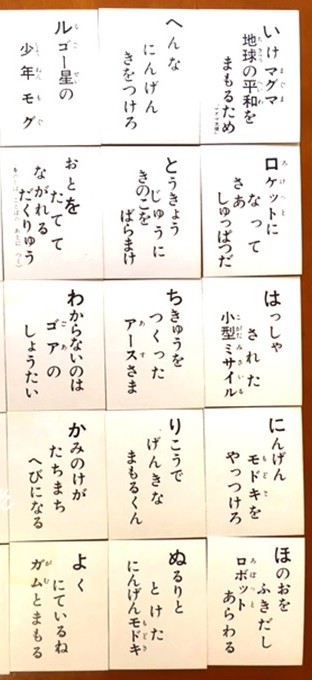 いけマグマ
地球の平和を
まもるため
ロケットに
なって
さあ
しゅっぱつだ
はっしゃ
された
小型ミサイル
にんげん
モドキを
やっつけろ
ほのおを
ふきだし
ロボット
あらわる
へんな
にんげん
きをつけろ
とうきょう
じゅうに
きのこを
ばらまけ
ちきゅうを
つくった
アースさま
りこうで
げんきな
まもるくん
ぬるりと
とけた
にんげんモドキ
ルゴー星の
少年モグ
おとを
たてて
ながれる
だくりゅう
わからないのは
ゴアの
しょうたい
かみのけが
たちまち
へびになる
よく
にているね
ガムとまもる